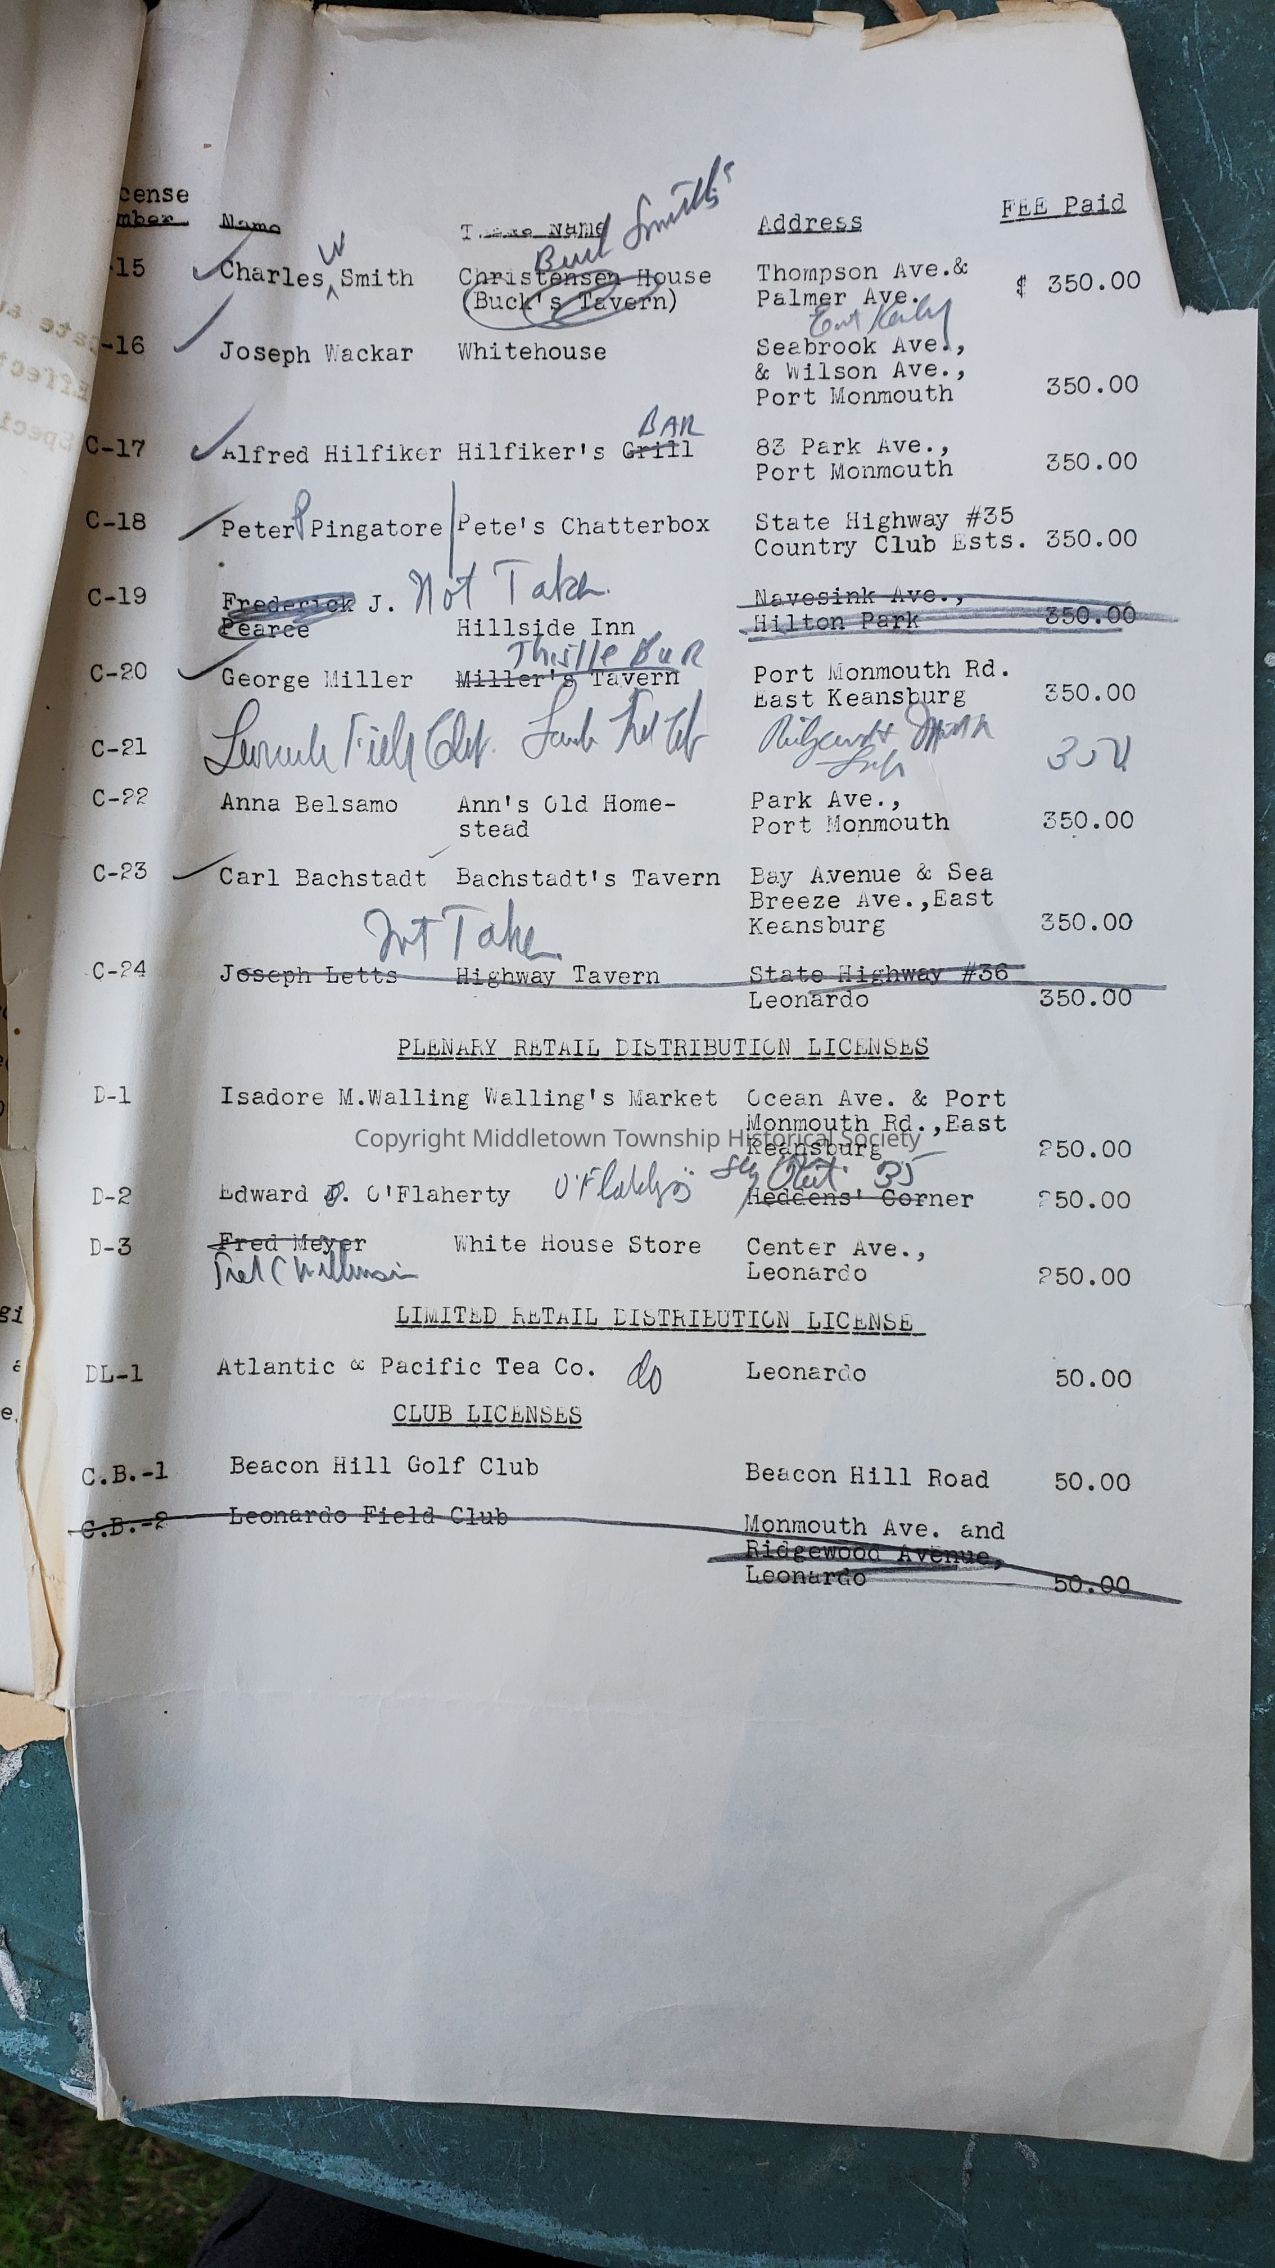 cense
mber Name Trade Name Address FEE Paid
Buck Smith's
W
15 Charles Smith Christensen House Thompson Ave.& $ 350.00
(Buck's Tavern) Palmer Ave.
-16 Joseph Wackar Whitehouse Seabrook Ave.,
& Wilson Ave.,
Port Monmouth 350.00
BAR
C-17 Alfred Hilfiker Hilfiker's Grill 83 Park Ave.,
Port Monmouth 350.00
C-18 Peter P Pingatore Pete's Chatterbox State Highway #35
Country Club Ests. 350.00
Not Taken
C-19 Frederick J. Navesink Ave.,
Pearce Hillside Inn Hilton Park 350.00
Thistle BAR
C-20 George Miller Miller's Tavern Port Monmouth Rd.
East Keansburg 350.00
C-21 Leonardo Field Club 350
C-22 Anna Belsamo Ann's Old Home- Park Ave.,
stead Port Monmouth 350.00
C-23 Carl Bachstadt Bachstadt's Tavern Bay Avenue & Sea
Breeze Ave.,East
Keansburg 350.00
Not Taken
C-24 Joseph Letts Highway Tavern State Highway #36
Leonardo 350.00
PLENARY RETAIL DISTRIBUTION LICENSES
D-1 Isadore M.Walling Walling's Market Ocean Ave. & Port
Monmouth Rd.,East
Copyright Middletown Township Historical Society
Keansburg 250.00
O'Flahty's 35
D-2 Edward D. O'Flaherty Heddens' Corner 250.00
D-3 Fred Meyer White House Store Center Ave.,
Fred C Leonardo 250.00
LIMITED RETAIL DISTRIBUTION LICENSE
DL-1 Atlantic & Pacific Tea Co. do Leonardo 50.00
CLUB LICENSES
C.B.-1 Beacon Hill Golf Club Beacon Hill Road 50.00
C.B.-2 Leonardo Field Club Monmouth Ave. and
Ridgewood Avenue,
Leonardo 50.00